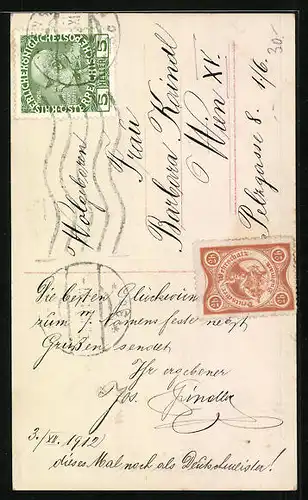 30.-
KAISERLICHE KÖNIGLICHE ÖSTERREICHISCHE POST
5 HELLER 5
Wohlgeboren
Frau
Barbara Kaindl
Wien XV.
Pelzgasse 8. 1/6.
Die besten Glückwün
zum Namensfeste nebst
Grüßen sendet
Ihr ergebener
Jos.
3./XII. 1912
dieses Mal noch als Deutschmeister!